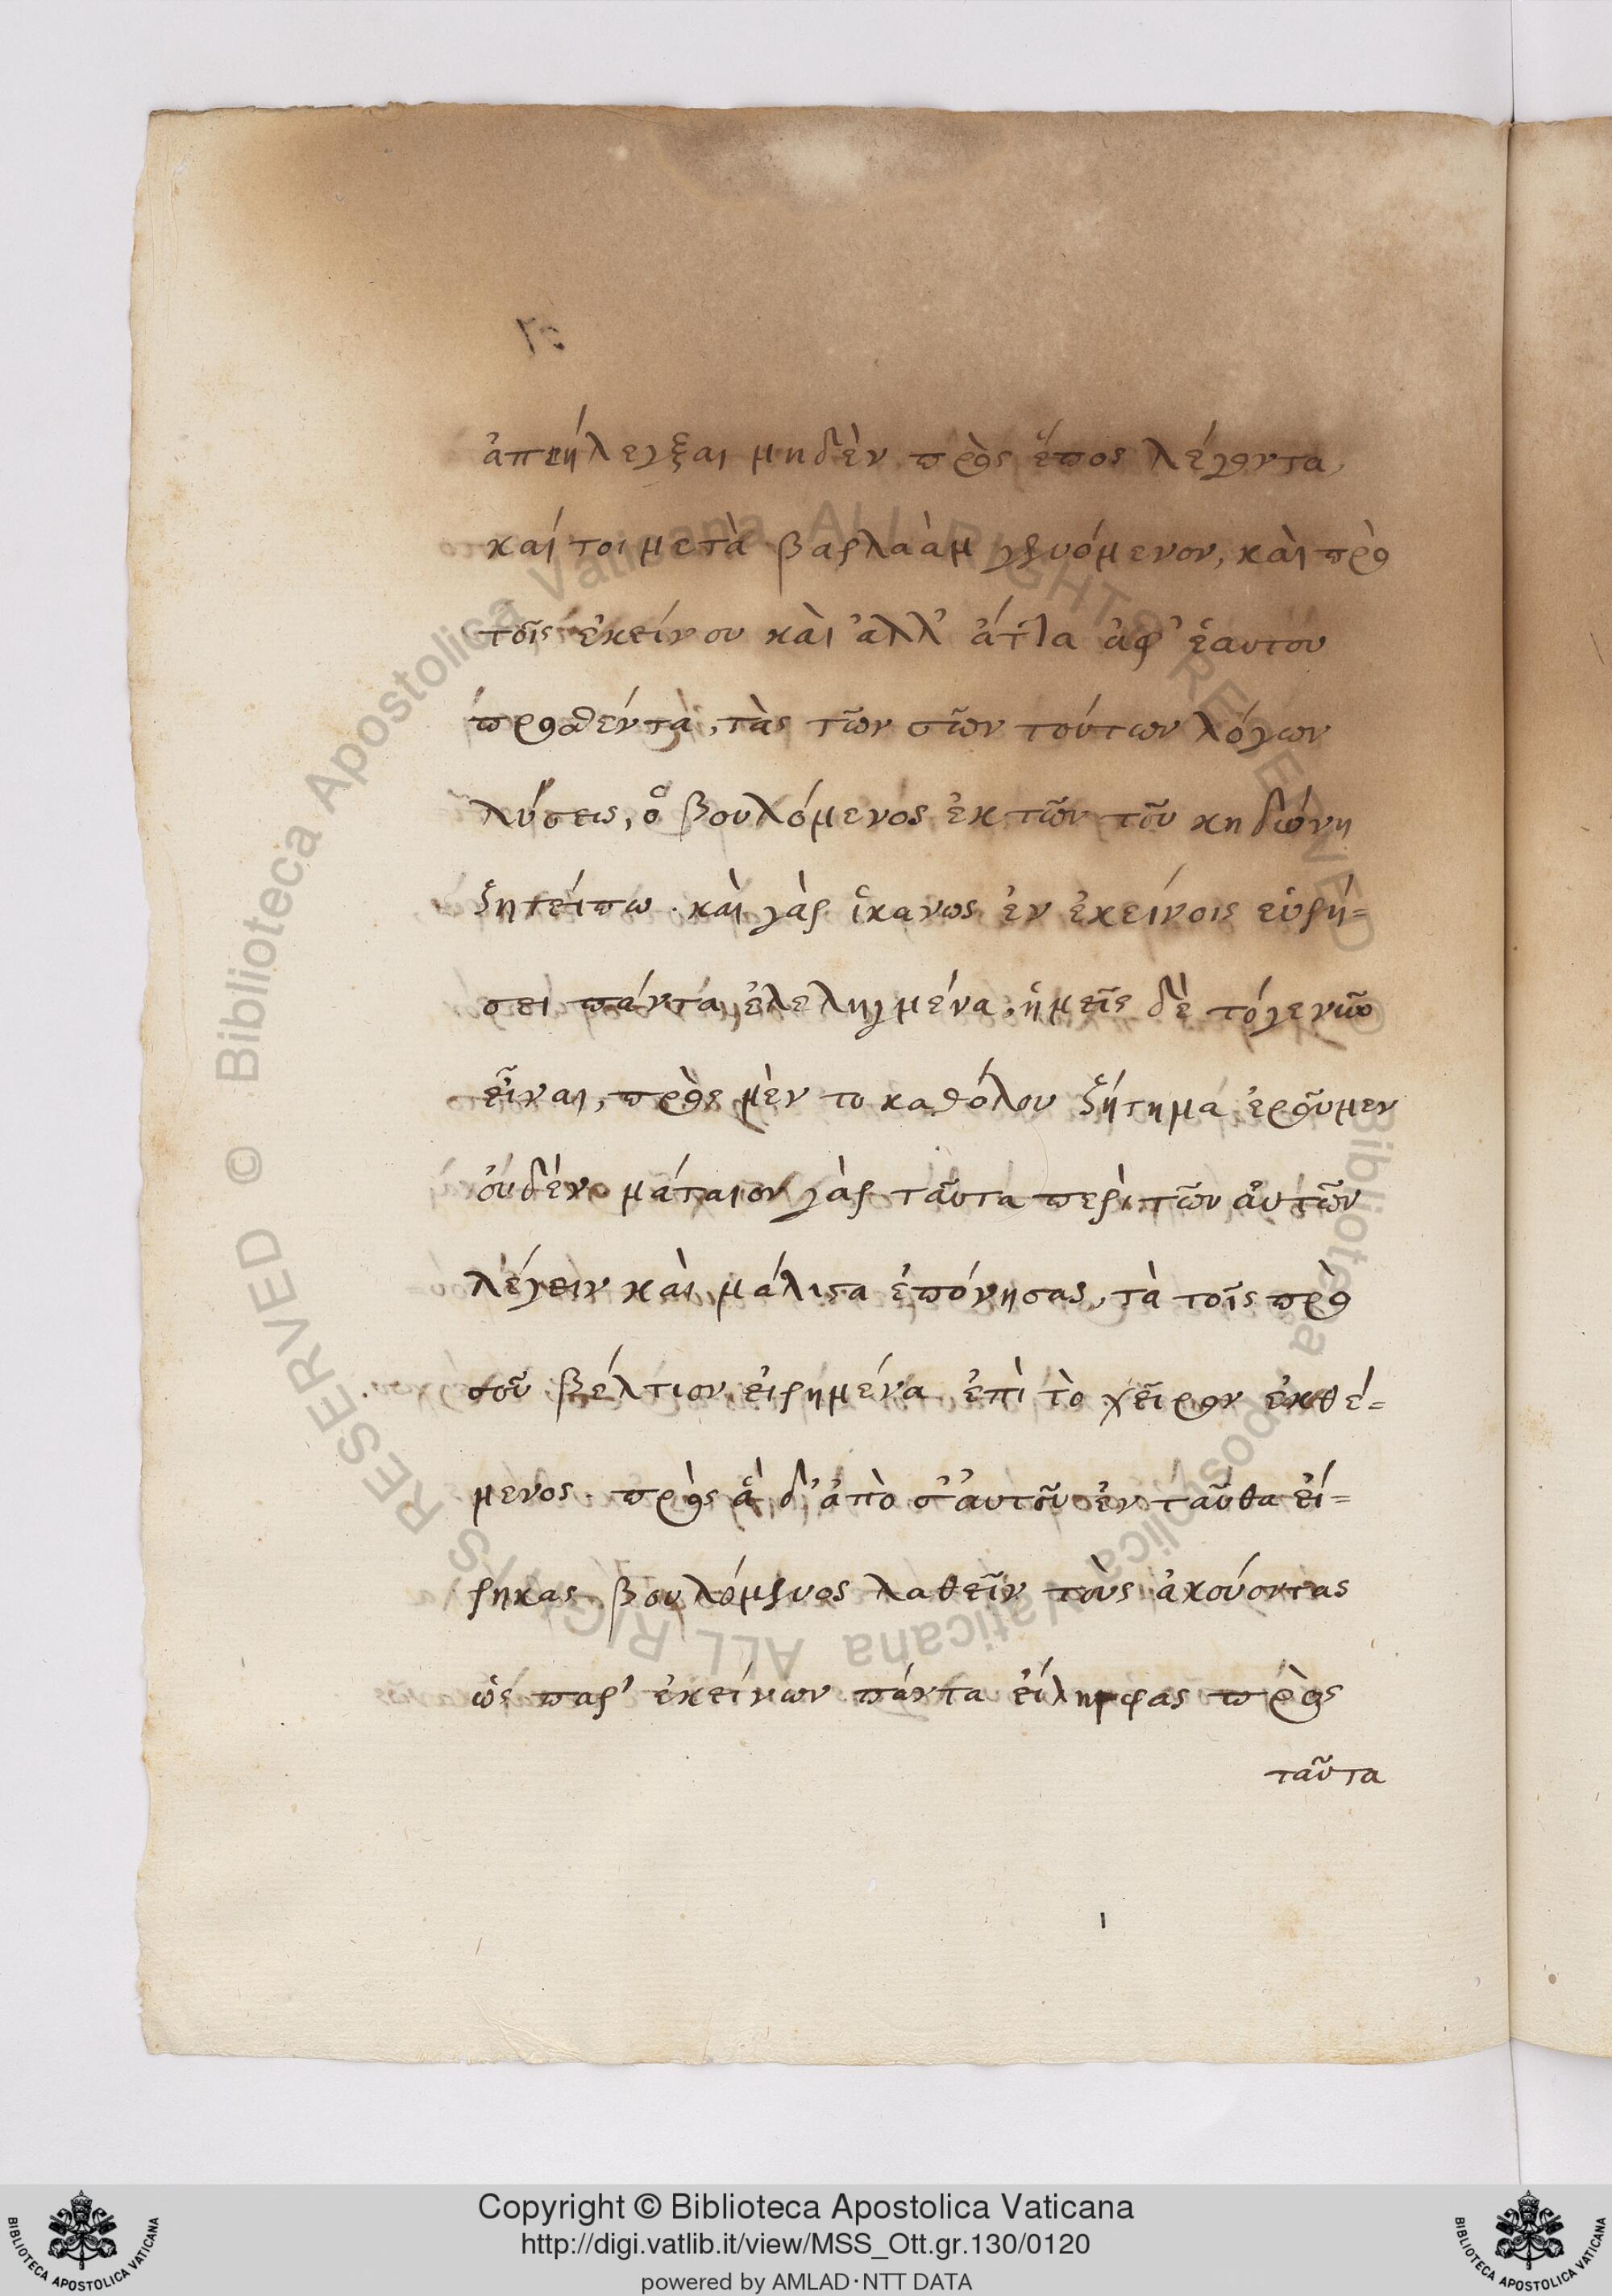 ἀπήλεγξαι μηδὲν πρὸς ἔπος λέγοντα,
καί τοι μετὰ βαρλαὰμ γενόμενον, καὶ πρὸ
τοῖς ἐκείνου καὶ ἀλλ' ἄττα ἀφ' ἑαυτου
προθέντα, τὰς τῶν σῶν τούτων λόγων
λύσεις, ὁ βουλόμενος ἐκ τῶν τοῦ κηδώνη
ζητείτω. καὶ γὰρ ἱκανως ἐν ἐκείνοις εὑρή=
σει πάντα ἐλεληγμένα. ἡμεῖς δὲ τόγενῦν
εἶναι, πρὸς μὲν το καθόλου ζήτημα ἐροῦμεν
οὐδέν. μάταιον γὰρ ταῦτα περὶ τῶν αὐτῶν
λέγειν καὶ μάλιστα ἐπόνησας, τὰ τοῖς πρὸ
σοῦ βέλτιον εἰρημένα ἐπὶ τὸ χεῖρον ἐκθέ=
μενος. πρὸς ἃ δ' ἀπὸ σ' αυτοῦ ἐν ταῦθα εἴ=
ρηκας βουλόμενος λαθεῖν τοὺς ἀκούοντας
ὡς παρ' ἐκείνων πάντα εἴληφας πρὸς
ταῦτα
Copyright © Biblioteca Apostolica Vaticana
http://digi.vatlib.it/view/MSS_Ott.gr.130/0120
powered by AMLAD·NTT DATA
BIBLIOTECA APOSTOLICA VATICANA
BIBLIOTECA APOSTOLICA VATICANA
© Biblioteca Apostolica Vaticana ALL RIGHTS RESERVED
© Biblioteca Apostolica Vaticana ALL RIGHTS RESERVED